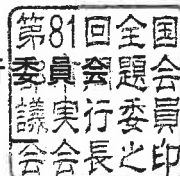 第81回全国
委員会題会
議実行委員
会会長之印